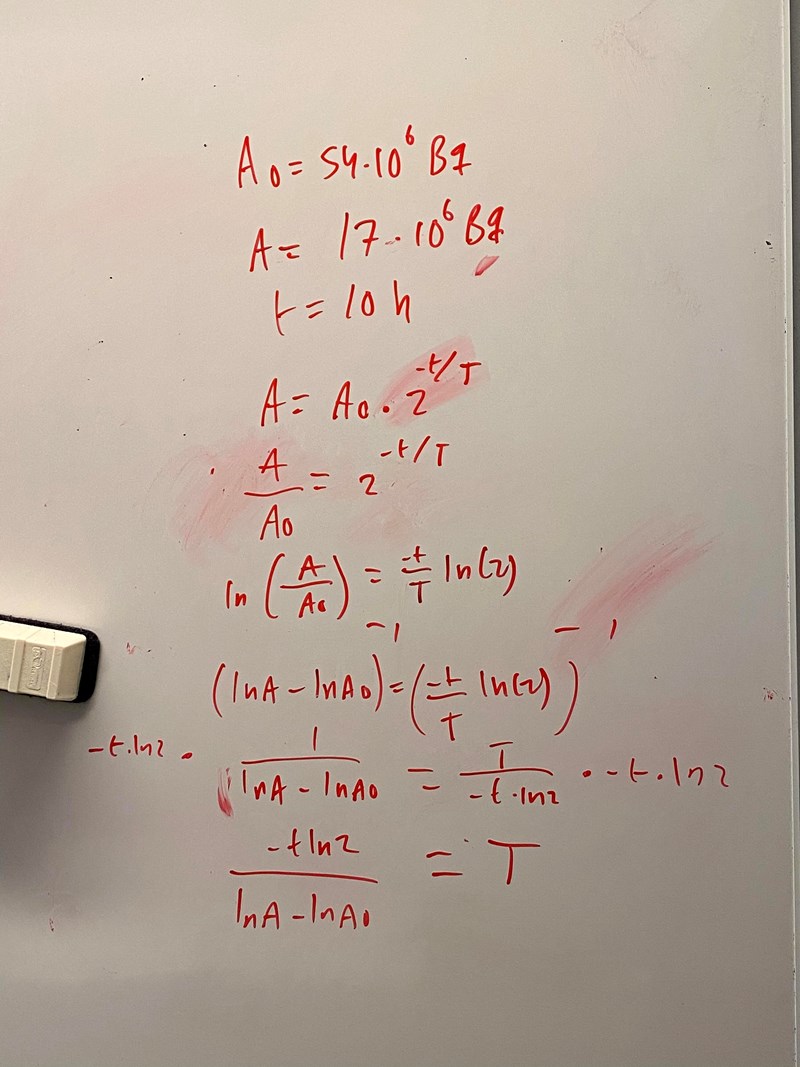 A₀ = 54·10⁶ Bq
A = 17·10⁶ Bq
t = 10 h
A = A₀ · 2^(-t/T)
A/A₀ = 2^(-t/T)
ln(A/A₀) = -t/T ln(2)
(lnA - lnA₀)^(-1) = (-t/T ln(2))^(-1)
-t.ln2 · 1/(lnA - lnA₀) = T/(-t·ln2) · -t.ln2
-t ln2/(lnA - lnA₀) = T